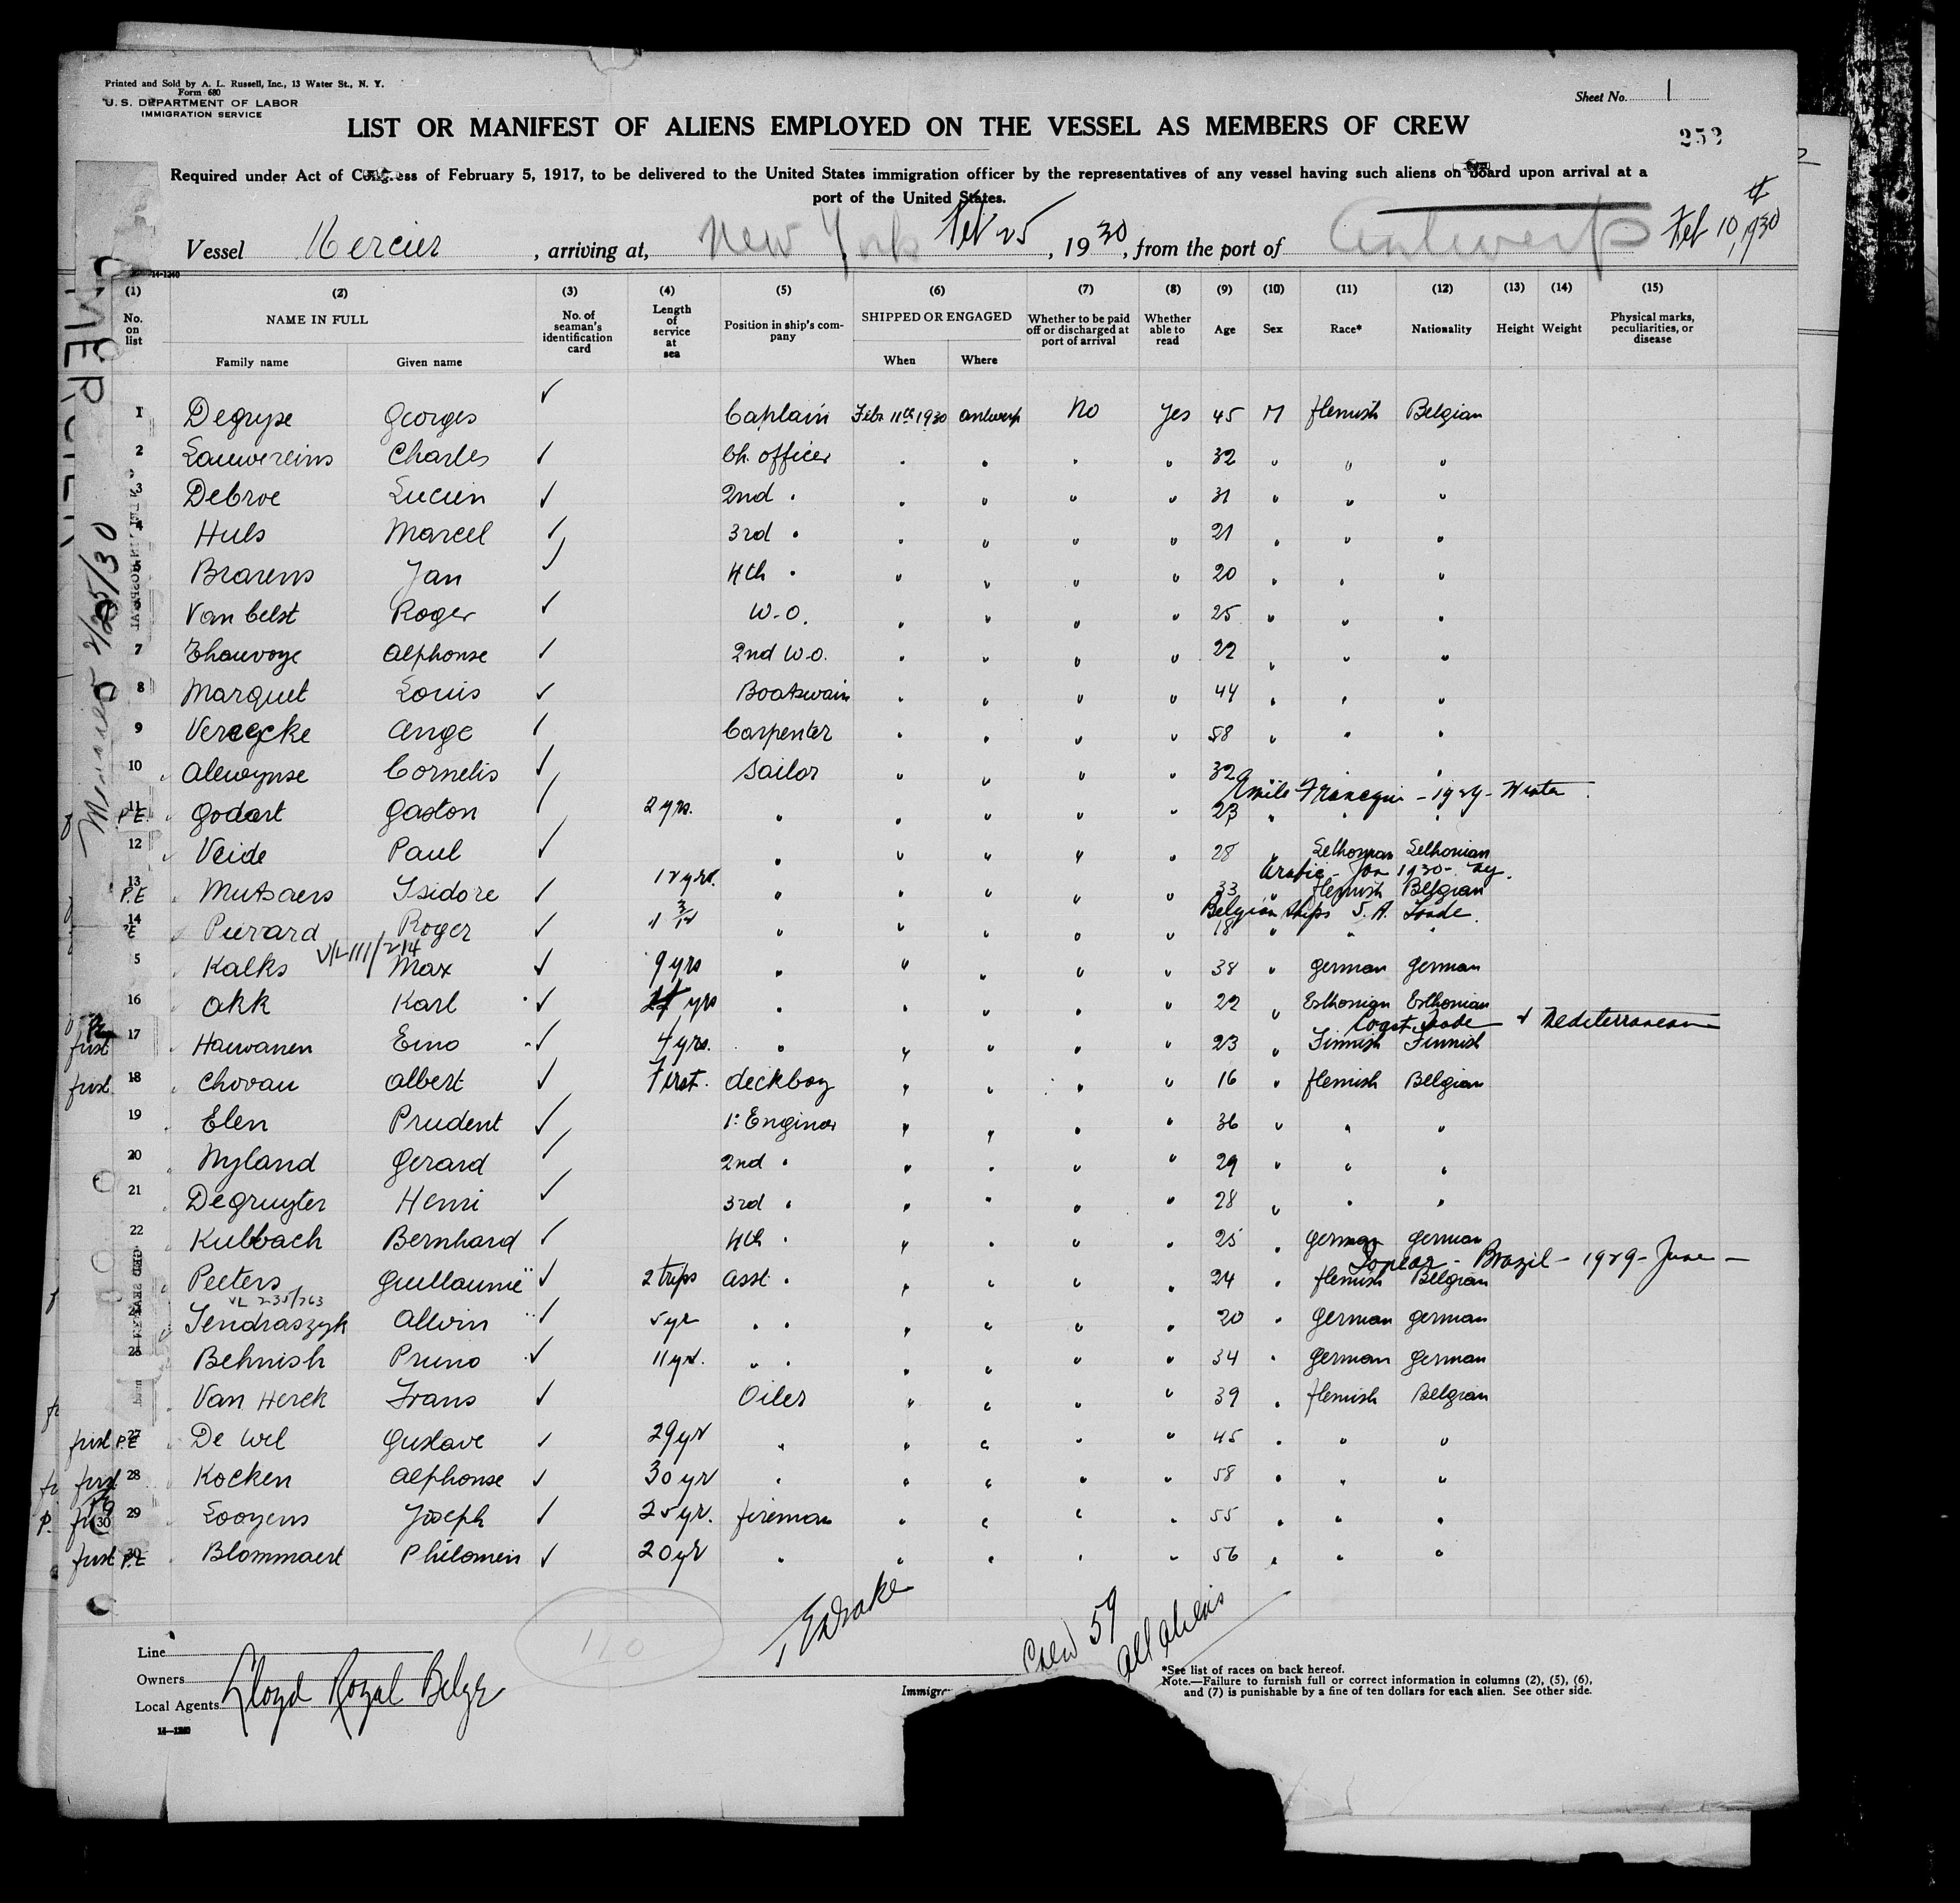 Printed and Sold by A. L. Russell, Inc., 13 Water St., N. Y.
Form 680
U. S. DEPARTMENT OF LABOR
IMMIGRATION SERVICE
Sheet No. 1
LIST OR MANIFEST OF ALIENS EMPLOYED ON THE VESSEL AS MEMBERS OF CREW
252
Required under Act of Congress of February 5, 1917, to be delivered to the United States immigration officer by the representatives of any vessel having such aliens on board upon arrival at a
port of the United States.
Vessel Mercier, arriving at, New York Feb 25, 1930, from the port of Antwerp Feb 10, 1930
14-1240
(1) (2) (3) (4) (5) (6) (7) (8) (9) (10) (11) (12) (13) (14) (15)
No. on list NAME IN FULL Family name Given name No. of seaman's identification card Length of service at sea Position in ship's company SHIPPED OR ENGAGED When Where Whether to be paid off or discharged at port of arrival Whether able to read Age Sex Race* Nationality Height Weight Physical marks, peculiarities, or disease
1 Degryse Georges ✓ Captain Febr 11th 1930 Antwerp No Yes 45 M flemish Belgian
2 Lauwereins Charles ✓ Ch. officer " " " " 32 " " "
3 Debroe Lucien ✓ 2nd " " " " " 31 " " "
4 Huls Marcel ✓ 3rd " " " " " 21 " " "
Brarens Jan ✓ 4th " " " " " 20 " " "
Van belst Roger ✓ W.O. " " " " 25 " " "
7 Thauvoye Alphonse ✓ 2nd W.O. " " " " 22 " " "
8 Marquet Louis ✓ Boatswain " " " " 44 " " "
9 Verecycke Ange ✓ Carpenter " " " " 58 " " "
10 Alewynse Cornelis ✓ Sailor " " " " 32 " " "
Emile Francqui - 1929 - Winter
11 P.E. Godart Gaston ✓ 2 yrs. " " " " " 23 " " "
12 Veide Paul ✓ " " " " " 28 " Esthonian Esthonian
Arabic - Jan 1930 - NY.
13 P.E Mutsaers Isidore ✓ 12 yrs. " " " " " 33 " flemish Belgian
Belgian Ships S. A. Trade.
14 PE Pierard Roger ✓ 1 3/12 " " " " " 18 " " "
VL 111/214
5 Kalks Max ✓ 9 yrs " " " " " 38 " german german
16 Okk Karl ✓ yrs " " " " " 22 " Esthonian Esthonian
Coast Trade + Mediterranean
first 17 Hawanen Eino ✓ 4 yrs. " " " " " 23 " Finnish Finnish
first 18 Chovau Albert ✓ First. deckboy " " " " 16 " flemish Belgian
19 Elen Prudent ✓ 1: Engineer " " " " 36 " " "
20 Nyland Gerard ✓ 2nd " " " " " 29 " " "
21 Degruyter Henri ✓ 3rd " " " " " 28 " " "
22 Kubbach Bernhard ✓ 4th " " " " " 25 " german german
Brazil - 1929 - June -
Peeters Guillaume ✓ 2 trips asst " " " " " 24 " flemish Belgian
VL 235/763
24 Jendraszyk Alwin ✓ 5 yr " " " " " " 20 " german german
25 Behnish Pruno ✓ 11 yr. " " " " " " 34 " german german
Van Herck Frans ✓ Oiler " " " " 39 " flemish Belgian
first P.E 27 De Wil Gustave ✓ 29 yr " " " " " 45 " " "
first 28 Kocken Alphonse ✓ 30 yr " " " " " 58 " " "
29 Looyens Joseph ✓ 25 yr. fireman " " " " 55 " " "
first P.E 30 Blommaert Philomein ✓ 20 yr " " " " " 56 " " "
110
Crew 59
all aliens
Line
Owners
Local Agents Lloyd Royal Belge
14-1240
Immigra
*See list of races on back hereof.
Note.—Failure to furnish full or correct information in columns (2), (5), (6),
and (7) is punishable by a fine of ten dollars for each alien. See other side.